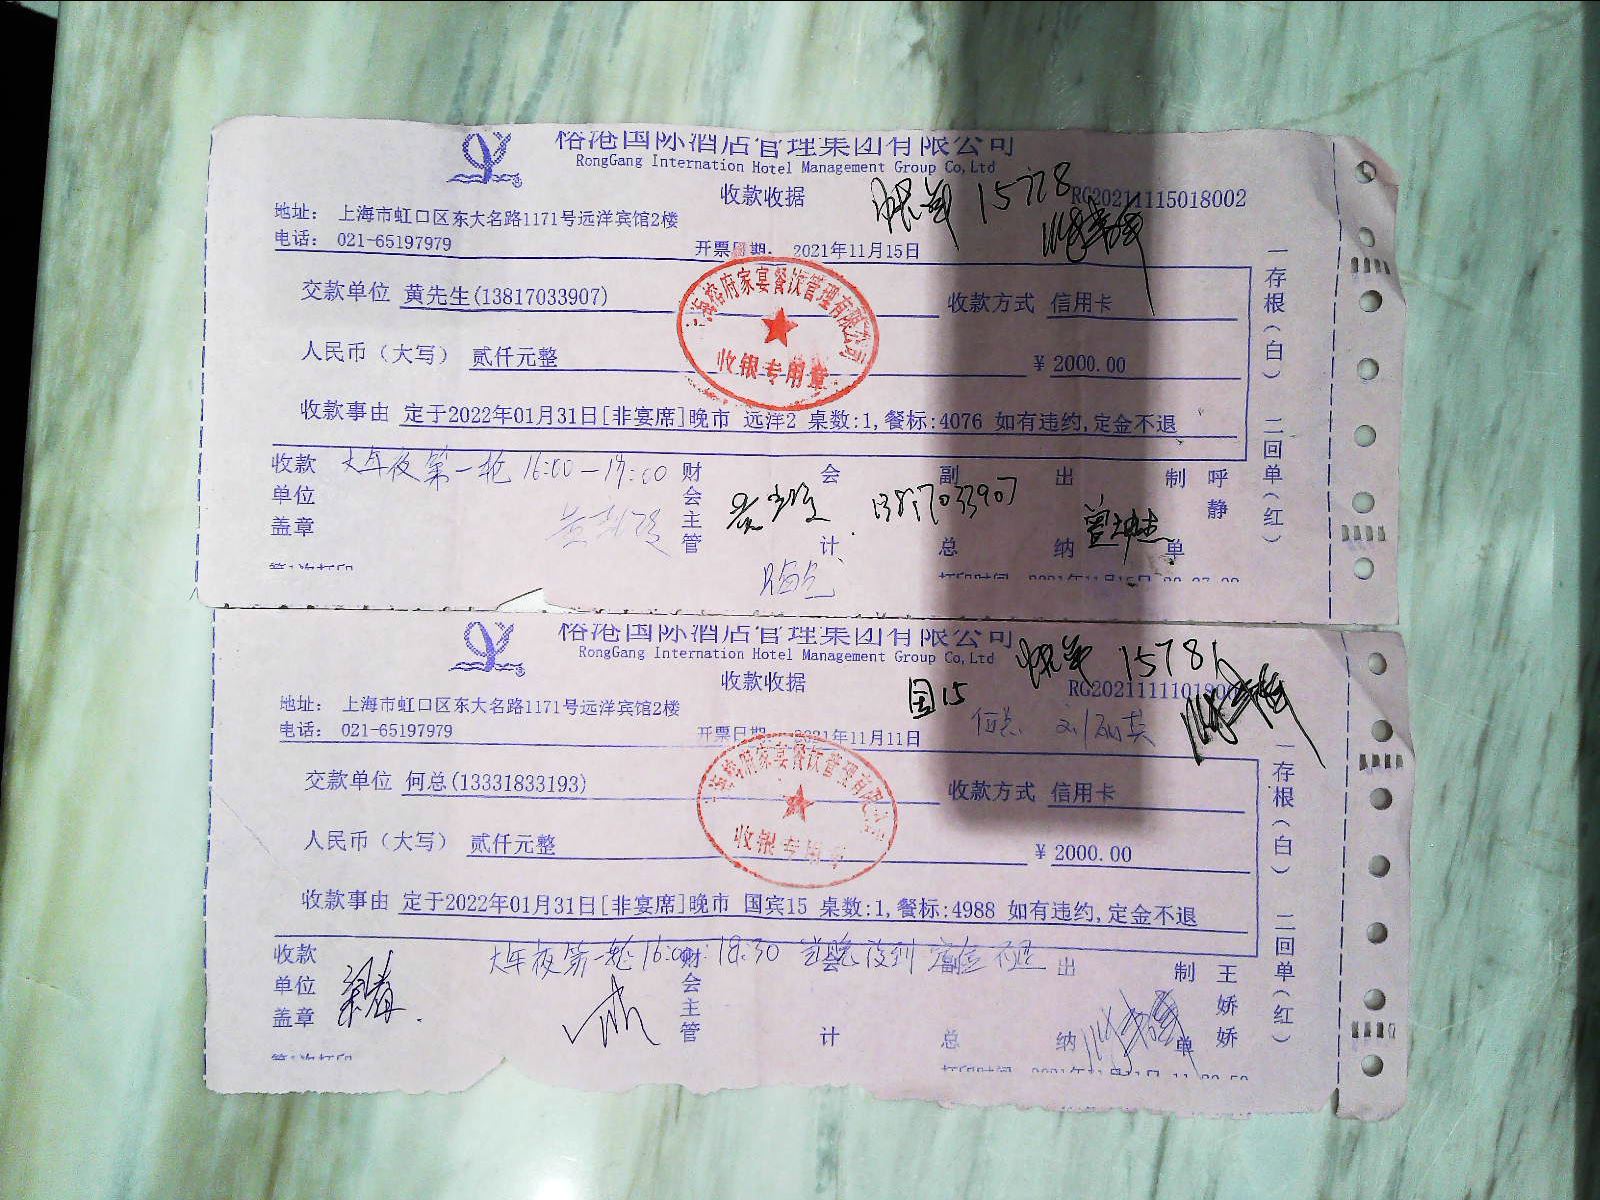 榕港国际酒店管理集团有限公司
RongGang Internation Hotel Management Group Co,Ltd
收款收据
15778
RG20211115018002
地址： 上海市虹口区东大名路1171号远洋宾馆2楼
电话： 021-65197979
开票日期： 2021年11月15日
交款单位 黄先生(13817033907)
收款方式 信用卡
人民币（大写） 贰仟元整
¥ 2000.00
上海榕府家宴餐饮管理有限公司
收银专用章
收款事由 定于2022年01月31日[非宴席]晚市 远洋2 桌数:1,餐标:4076 如有违约,定金不退
一存根(白) 二回单(红)
大年夜第一轮 16:00-19:00
收款单位盖章
财会主管
会计
副总
出纳
制单
呼静
13817033907
第1次打印
打印时间 2021年11月15日
榕港国际酒店管理集团有限公司
RongGang Internation Hotel Management Group Co,Ltd
收款收据
国15
15786
地址： 上海市虹口区东大名路1171号远洋宾馆2楼
电话： 021-65197979
开票日期： 2021年11月11日
何总
交款单位 何总(13331833193)
收款方式 信用卡
人民币（大写） 贰仟元整
¥ 2000.00
上海榕府家宴餐饮管理有限公司
收银专用章
收款事由 定于2022年01月31日[非宴席]晚市 国宾15 桌数:1,餐标:4988 如有违约,定金不退
一存根(白) 二回单(红)
大年夜第一轮 16:00-18:30 当晚没到 定金不退
收款单位盖章
财会主管
会计
副总
出纳
制单
王娇娇
第1次打印
打印时间 2021年11月11日